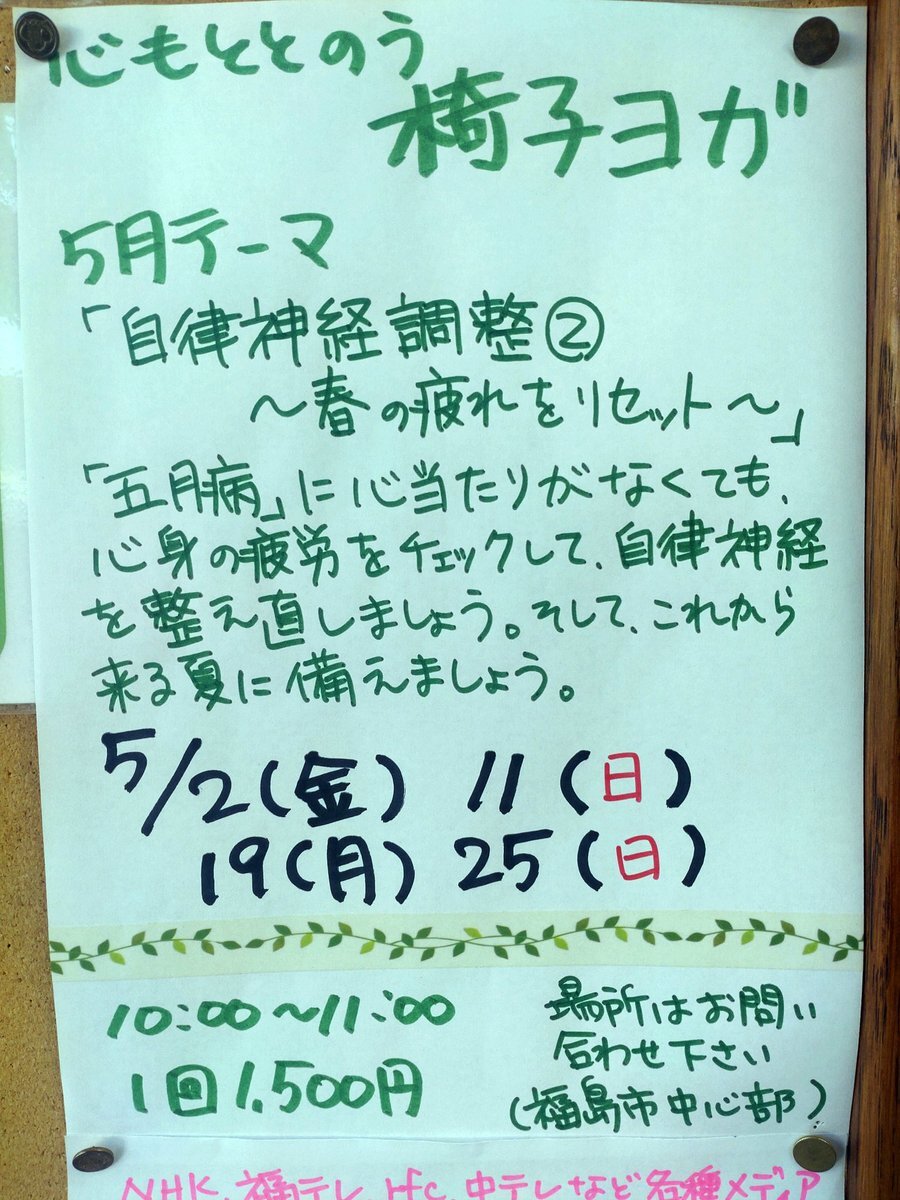 心もととのう
椅子ヨガ
5月テーマ
「自律神経調整②
〜春の疲れをリセット〜」
「五月病」に心当たりがなくても、
心身の疲労をチェックして、自律神経
を整え直しましょう。そして、これから
来る夏に備えましょう。
5/2(金) 11(日)
19(月) 25(日)
10:00〜11:00
1回1,500円
場所はお問い
合わせ下さい
(福島市中心部)
NHK、福テレ、rfc、中テレなど各種メディア